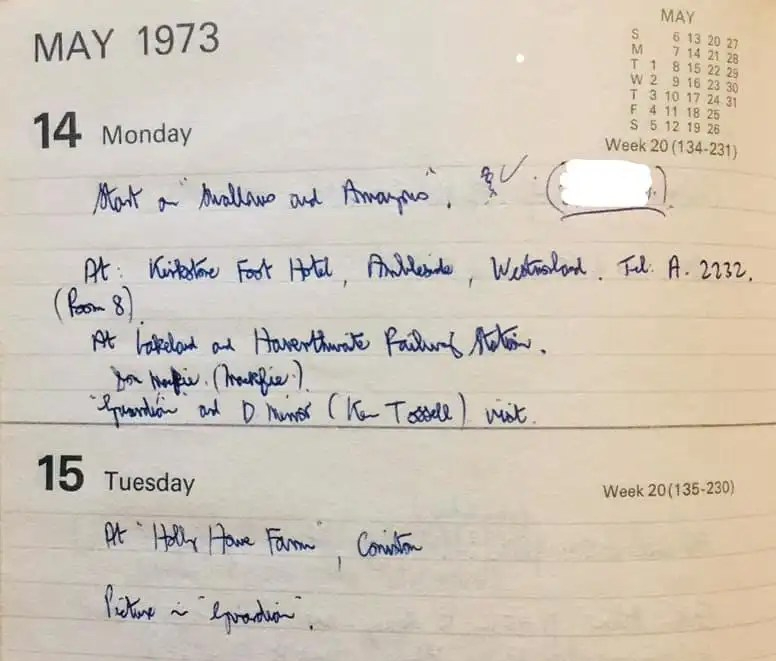 MAY 1973
MAY
S 6 13 20 27
M 7 14 21 28
T 1 8 15 22 29
W 2 9 16 23 30
T 3 10 17 24 31
F 4 11 18 25
S 5 12 19 26
14 Monday
Week 20 (134-231)
Start on "Swallows and Amazons".
At: Kirkstone Foot Hotel, Ambleside, Westmorland. Tel. A. 2232.
(Room 8)
At Lakeland and Haverthwaite Railway Station.
"Guardian" and D Mirror (Ken Tossell) visit.
15 Tuesday
Week 20 (135-230)
At "Holly Howe Farm", Coniston
Picture in "Guardian".